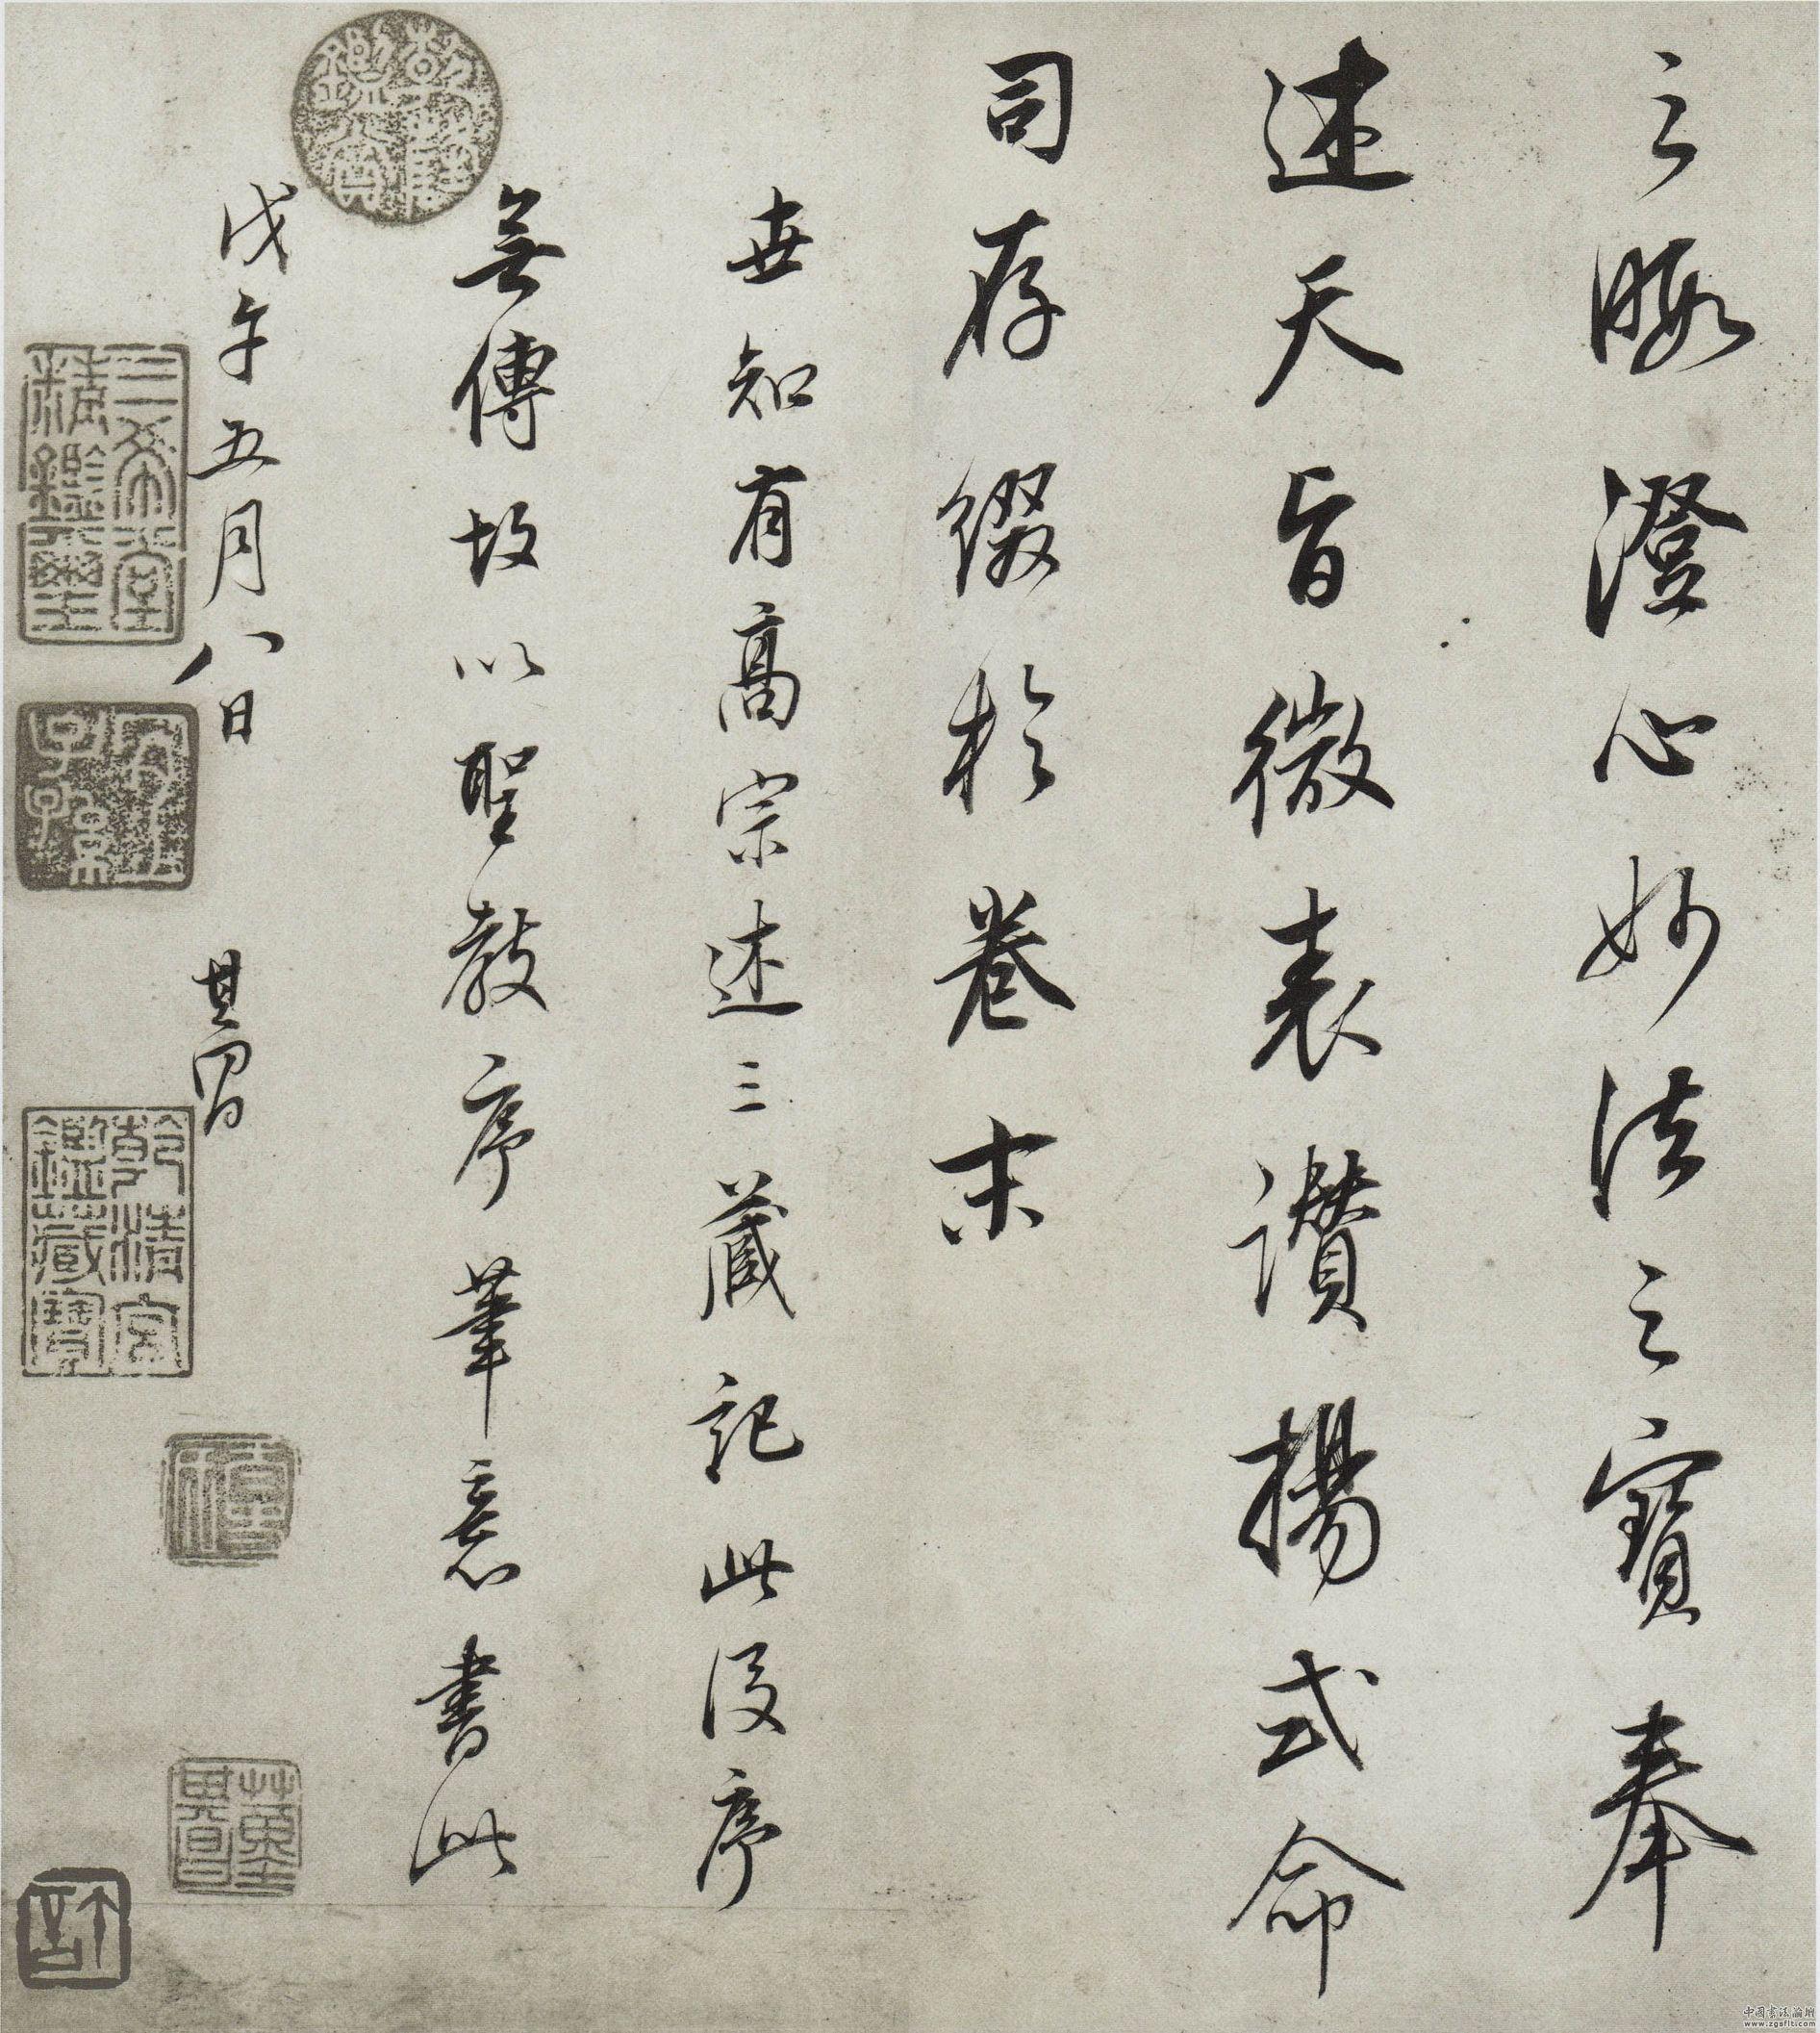 之暇澄心妙法之寶奉
述天旨微表讚揚式命
司存綴於卷末
世知有高宗述三藏記此後序
無傳故以聖教序筆意書此
戊午五月八日
其昌
乾隆鑑賞
三希堂精鑑璽
宜子孫
乾清宮鑑藏寶
董其昌
中国书法论坛
www.zgsflt.com